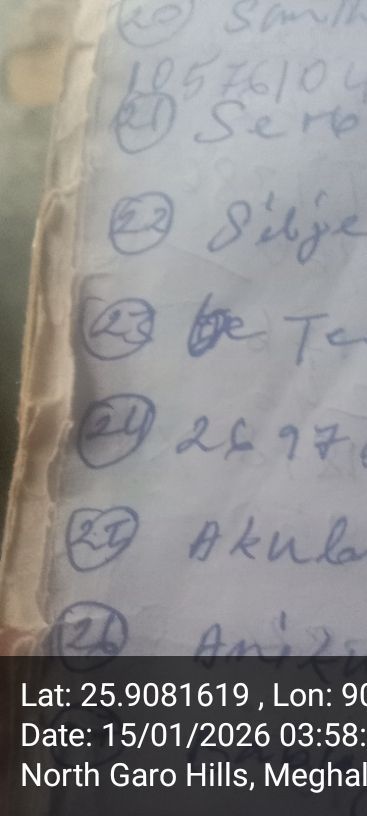 20 Santh
10576104
21 Sero
22 Silje
23 Te
24 2697
25 Akula
26
Lat: 25.9081619 , Lon: 90
Date: 15/01/2026 03:58:
North Garo Hills, Meghal